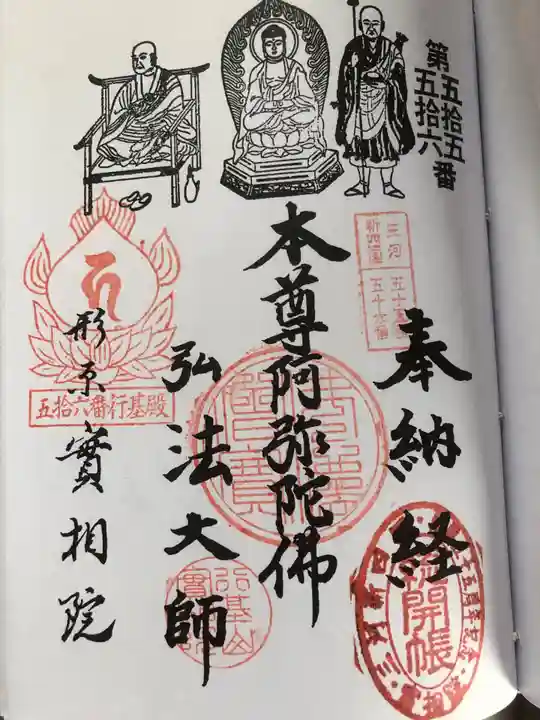 第五拾五
五拾六番
三河
新四国
奉納経
本尊阿弥陀佛
弘法大師
形原實相院
五拾六番行基殿
開帳